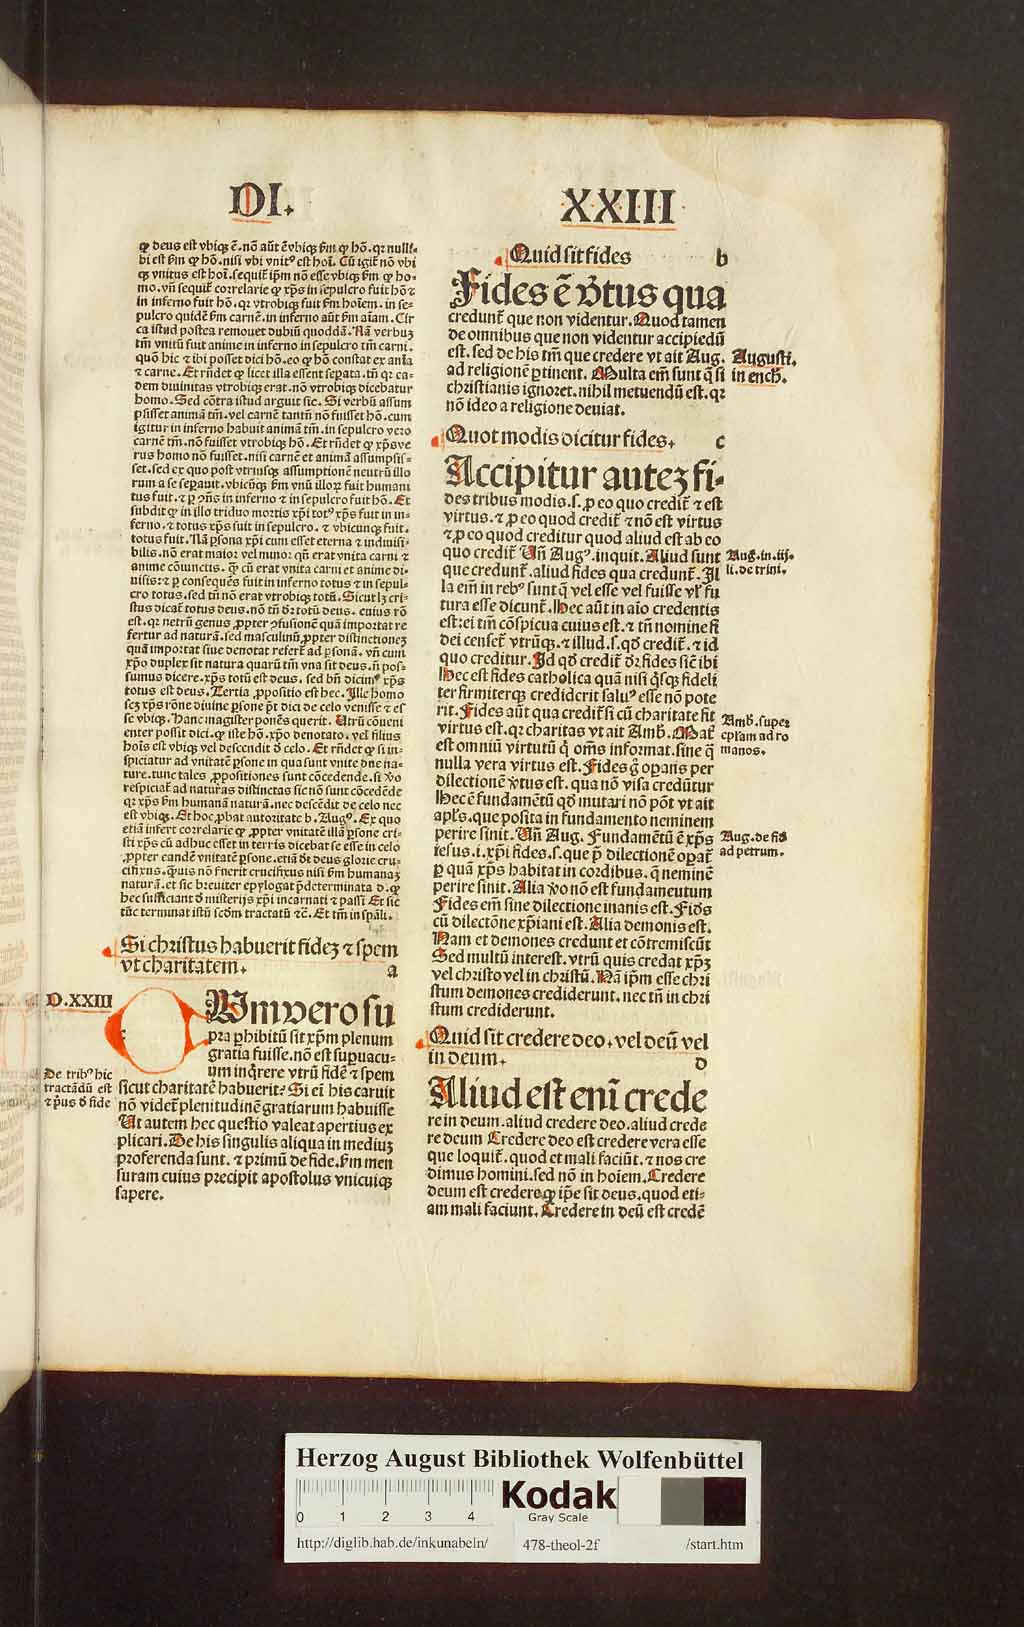 DI.
XXIII
ꝙ deus est vbiqȝ ē. nō aūt ēvbiqȝ ẜm ꝙ hō. qꝛ nulli-
bi est ẜm ꝙ hō. nisi vbi vnitꝰ est hoī. Cū igit̄ nō vbi
qȝ vnitus est hoī. sequit̄ ip̄m nō esse vbiqȝ ẜm ꝙ ho-
mo. vn̄ sequit̄ correlarie ꝙ xp̄s in sepulcro fuit hō ⁊
in inferno fuit hō. qꝛ vtrobiqȝ fuit ẜm hoīem. in se-
pulcro quidē ẜm carnē. in inferno aūt ẜm aīam. Cir
ca istud postea remouet dubiū quoddā. Nā verbuȝ
tm̄ vnitū fuit anime in inferno in sepulcro tm̄ carni.
quō hic ⁊ ibi posset dici hō. eo ꝙ hō constat ex anīa
⁊ carne. Et rn̄det ꝙ licet illa essent sepata. tn̄ qꝛ ea-
dem diuinitas vtrobiqȝ erat. nō vtrobiqȝ dicebatur
homo. Sed cōtra istud arguit sic. Si verbū assum
psisset animā tm̄. vel carnē tantū nō fuisset hō. cum
igitur in inferno habuit animā tm̄. in sepulcro vero
carnē tm̄. nō fuisset vtrobiqȝ hō. Et rn̄det ꝙ xp̄s ve
rus homo nō fuisset. nisi carnē et animā assumpsis-
set. sed ex quo post vtriusqȝ assumptionē neutrū illo
rum a se sepauit. vbicūqȝ ẜm vnū illoꝝ fuit humani
tus fuit. ⁊ ꝑ ꝯn̄s in inferno ⁊ in sepulcro fuit hō. Et
subdit ꝙ in illo triduo mortis xp̄i totꝰ xp̄s fuit in in-
ferno. ⁊ totus xp̄s fuit in sepulcro. ⁊ vbicunqȝ fuit.
totus fuit. Nā ꝑsona xp̄i cum esset eterna ⁊ indiuisi-
bilis. nō erat maior vel minor qn̄ erat vnita carni ⁊
anime cōiunctis. ꝙ cū erat vnita carni et anime di-
uisis: ⁊ ꝑ consequēs fuit in inferno totus ⁊ in sepul-
cro totus. sed tn̄ nō erat vtrobiqȝ totū. Sicut lȝ cri-
stus dicat̄ totus deus. nō tn̄ d̄r totū deus. cuius rō
est. qꝛ netrū genus ꝓpter ꝯfusionē quā importat re
fertur ad naturā. sed masculinū ꝓpter distinctioneȝ
quā importat siue denotat refert̄ ad ꝑsonā. vn̄ cum
xp̄o duplex sit natura quarū tm̄ vna sit deus. n̄ pos-
sumus dicere. xp̄s totū est deus. sed bn̄ dicimꝰ xp̄s
totus est deus. Tertia ꝓpositio est hec. Ille homo
scȝ xp̄s rōne diuine ꝑsone pt̄ dici de celo venisse ⁊ es
se vbiqȝ. Hanc magister ponēs querit. Utrū cōueni
enter possit dici. ꝙ iste hō. xp̄o denotato. vel filius
hoīs est vbiqȝ vel descendit d̄ celo. Et rn̄det ꝙ si in-
spiciatur ad vnitatē ꝑsone in qua sunt vnite due na-
ture. tunc tales ꝓpositiones sunt cōcedende. si vo
respiciat̄ ad naturas distinctas sic nō sunt cōcedēde
qꝛ xp̄s ẜm humanā naturā. nec descēdit de celo nec
est vbiqȝ. Et hoc ꝓbat autoritate b. Augꝰ. Ex quo
etiā infert correlarie ꝙ ꝓpter vnitatē illā ꝑsone cri-
sti xp̄s cū adhuc esset in terris dicebat se esse in celo
ꝓpter eandē vnitatē ꝑsone. etiā d̄t deus glorie cru-
cifixus. ꝙuis nō fuerit crucifixus nisi ẜm humanaȝ
naturā. et sic breuiter epylogat p̄determinata d. ꝙ
hec sufficiant d̄ misterijs xp̄i incarnati ⁊ passi. Et sic
tūc terminat istū scd̄m tractatū ⁊c̄. Et tm̄ in sp̄ali.
Si christus habuerit fideȝ ⁊ spem
vt charitatem. a
D.XXIII
Um vero su
pra ꝓhibitū sit xp̄m plenum
gratia fuisse. nō est supuacu-
um inq̄rere vtrū fidē ⁊ spem
De tribꝰ hic
tractādū est
⁊ p̄us d̄ fide
sicut charitatē habuerit? Si ei his caruit
nō videt̄ plenitudinē gratiarum habuisse
Ut autem hec questio valeat apertius ex
plicari. De his singulis aliqua in mediuȝ
proferenda sunt. ⁊ primū de fide. ẜm men
suram cuius precipit apostolus vnicuiqȝ
sapere.
Quid sit fides b
Fides ē v̄tus qua
credunt̄ que non videntur. Quod tamen
de omnibus que non videntur accipiedū
est. sed de his tm̄ que credere vt ait Aug.
ad religionē ꝑtinent. Multa em̄ sunt q̄ si
christianis ignoret. nihil metuendū est. qꝛ
nō ideo a religione deuiat.
Augusti.
in ench.
Quot modis dicitur fides. c
Accipitur auteȝ fi-
des tribus modis. s. ꝓ eo quo credit̄ ⁊ est
virtus. ⁊ ꝓ eo quod credit̄ ⁊ nō est virtus
⁊ ꝓ eo quod creditur quod aliud est ab eo
quo credit̄ Un̄ Augꝰ. inquit. Aliud sunt
que credunt̄. aliud fides qua credunt̄. Il
la em̄ in rebꝰ sunt q̄ vel esse vel fuisse vl̄ fu
tura esse dicunt̄. Hec aūt in aīo credentis
est: ei tm̄ cōspicua cuius est. ⁊ tn̄ nomine fi
dei censet̄ vtrūqȝ. ⁊ illud. s. qd̄ credit̄. ⁊ id
quo creditur. Id qd̄ credit̄ d̄r fides sic̄ ibi
Hec est fides catholica quā nisi q̄sqȝ fideli
ter firmiterqȝ crediderit saluꝰ esse nō pote
rit. Fides aūt qua credit̄ si cū charitate sit
virtus est. qꝛ charitas vt ait Amb. Mat̄
est omniū virtutū q̄ om̄s informat. sine q̄
nulla vera virtus est. Fides g̊ oꝑans per
dilectionē v̄tus est. qua nō visa credūtur
Hec ē fundamētū qd̄ mutari nō pōt vt ait
apl̄s. que posita in fundamento neminem
perire sinit. Un̄ Aug. Fundamētū ē xp̄s
iesus. i. xp̄i fides. s. que ꝑ dilectionē oꝑat̄
ꝑ quā xp̄s habitat in cordibus. q̄ neminē
perire sinit. Alia vo nō est fundamentum
Fides em̄ sine dilectione inanis est. Fid̄s
cū dilectōne xp̄iani est. Alia demonis est.
Nam et demones credunt et cōtremiscūt
Sed multū interest. vtrū quis credat xp̄ȝ
vel christo vel in christū. Nā ip̄m esse chri
stum demones crediderunt. nec tn̄ in chri
stum crediderunt.
Aug. in. iij.
li. de trini.
Amb. super
ep̄lam ad ro
manos.
Aug. de fid̄
ad petrum.
Quid sit credere deo. vel deū vel
in deum. d
Aliud est enī crede
re in deum. aliud credere deo. aliud crede
re deum Credere deo est credere vera esse
que loquit̄. quod et mali faciūt. ⁊ nos cre
dimus homini. sed nō in hoīem. Credere
deum est credere ꝙ ip̄e sit deus. quod eti-
am mali faciunt. Credere in deū est credē
Herzog August Bibliothek Wolfenbüttel
0 1 2 3 4
Kodak
Gray Scale
http://diglib.hab.de/inkunabeln/ 478-theol-2f /start.htm